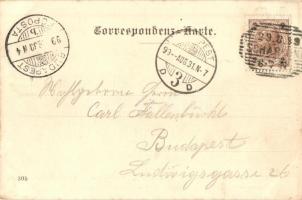 Correspondenz-Karte.
BUDAPEST
99
POSTA
BUDAPEST
99 AUG 31 N 7
D 3 D
Hochgeborne Herrn
Carl Fallenbüchl
Budapest
Ludwigsgasse 26
305